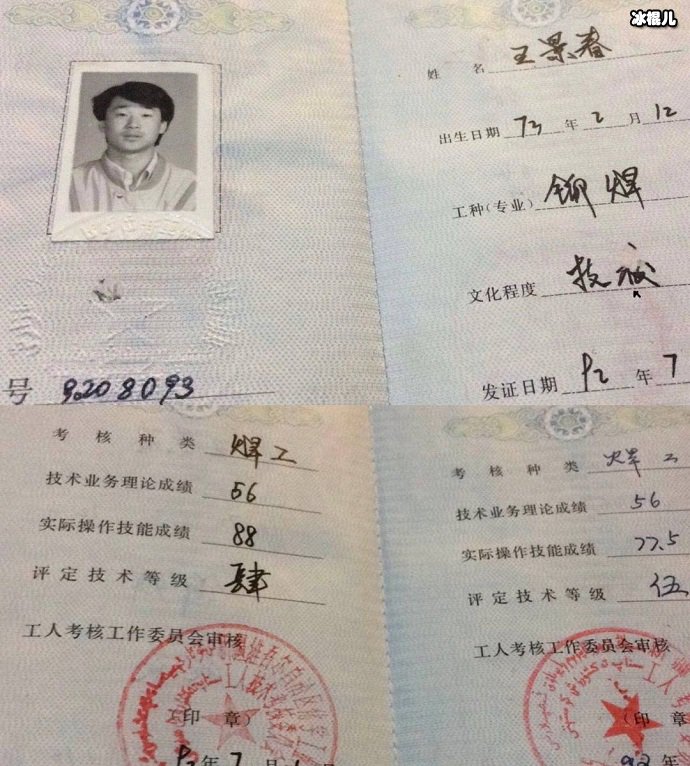 冰棍儿
号 9208093
姓 名 王景春
出生日期 73 年 2 月 12
工种(专业) 铆焊
文化程度 技校
发证日期 92 年 7
考 核 种 类 焊工
技术业务理论成绩 56
实际操作技能成绩 88
评 定 技 术 等 级 肆
工人考核工作委员会审核
(印 章)
92 年 7 月
考 核 种 类 焊工
技术业务理论成绩 56
实际操作技能成绩 77.5
评 定 技 术 等 级 伍
工人考核工作委员会审核
(印 章)
92 年